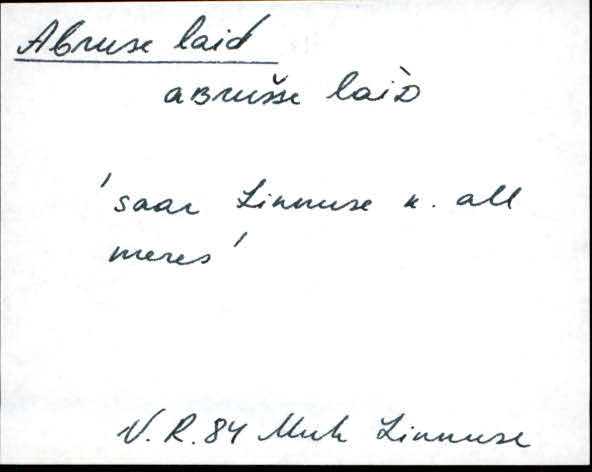 Abruse laid
aʙrušse laìᴅ
'saar Linnuse k. all
meres'
V.R.84 Muh Linnuse